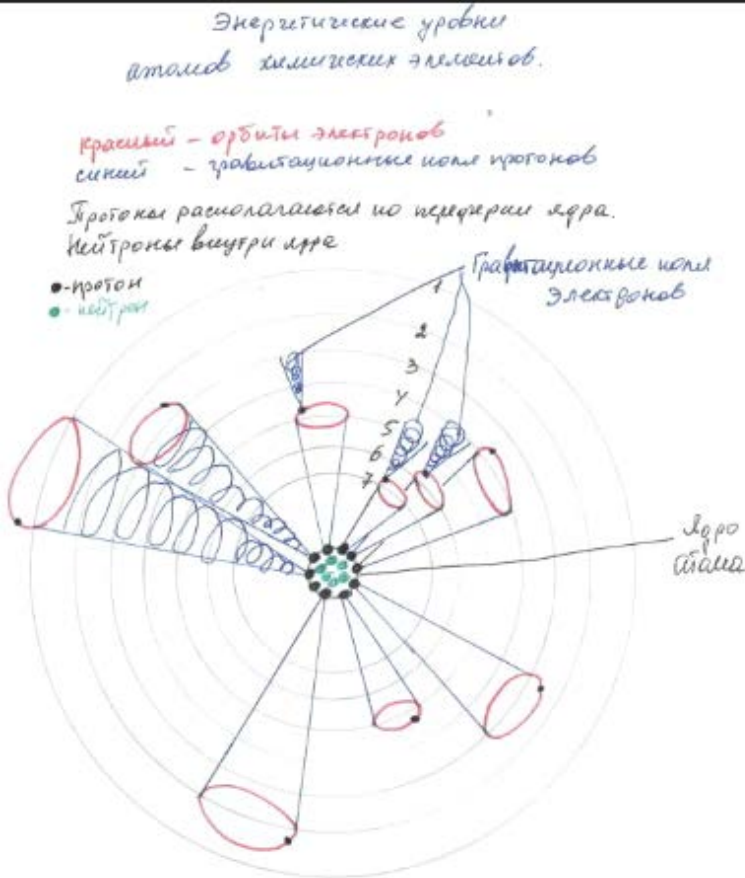 Энергетические уровни
атомов химических элементов.
красный – орбиты электронов
синий – гравитационные поля протонов
Протоны располагаются по переферии ядра.
Нейтроны внутри ядра
-протон
- нейтрон
Гравитационные поля
Электронов
1
2
3
4
5
6
7
Ядро
Атома